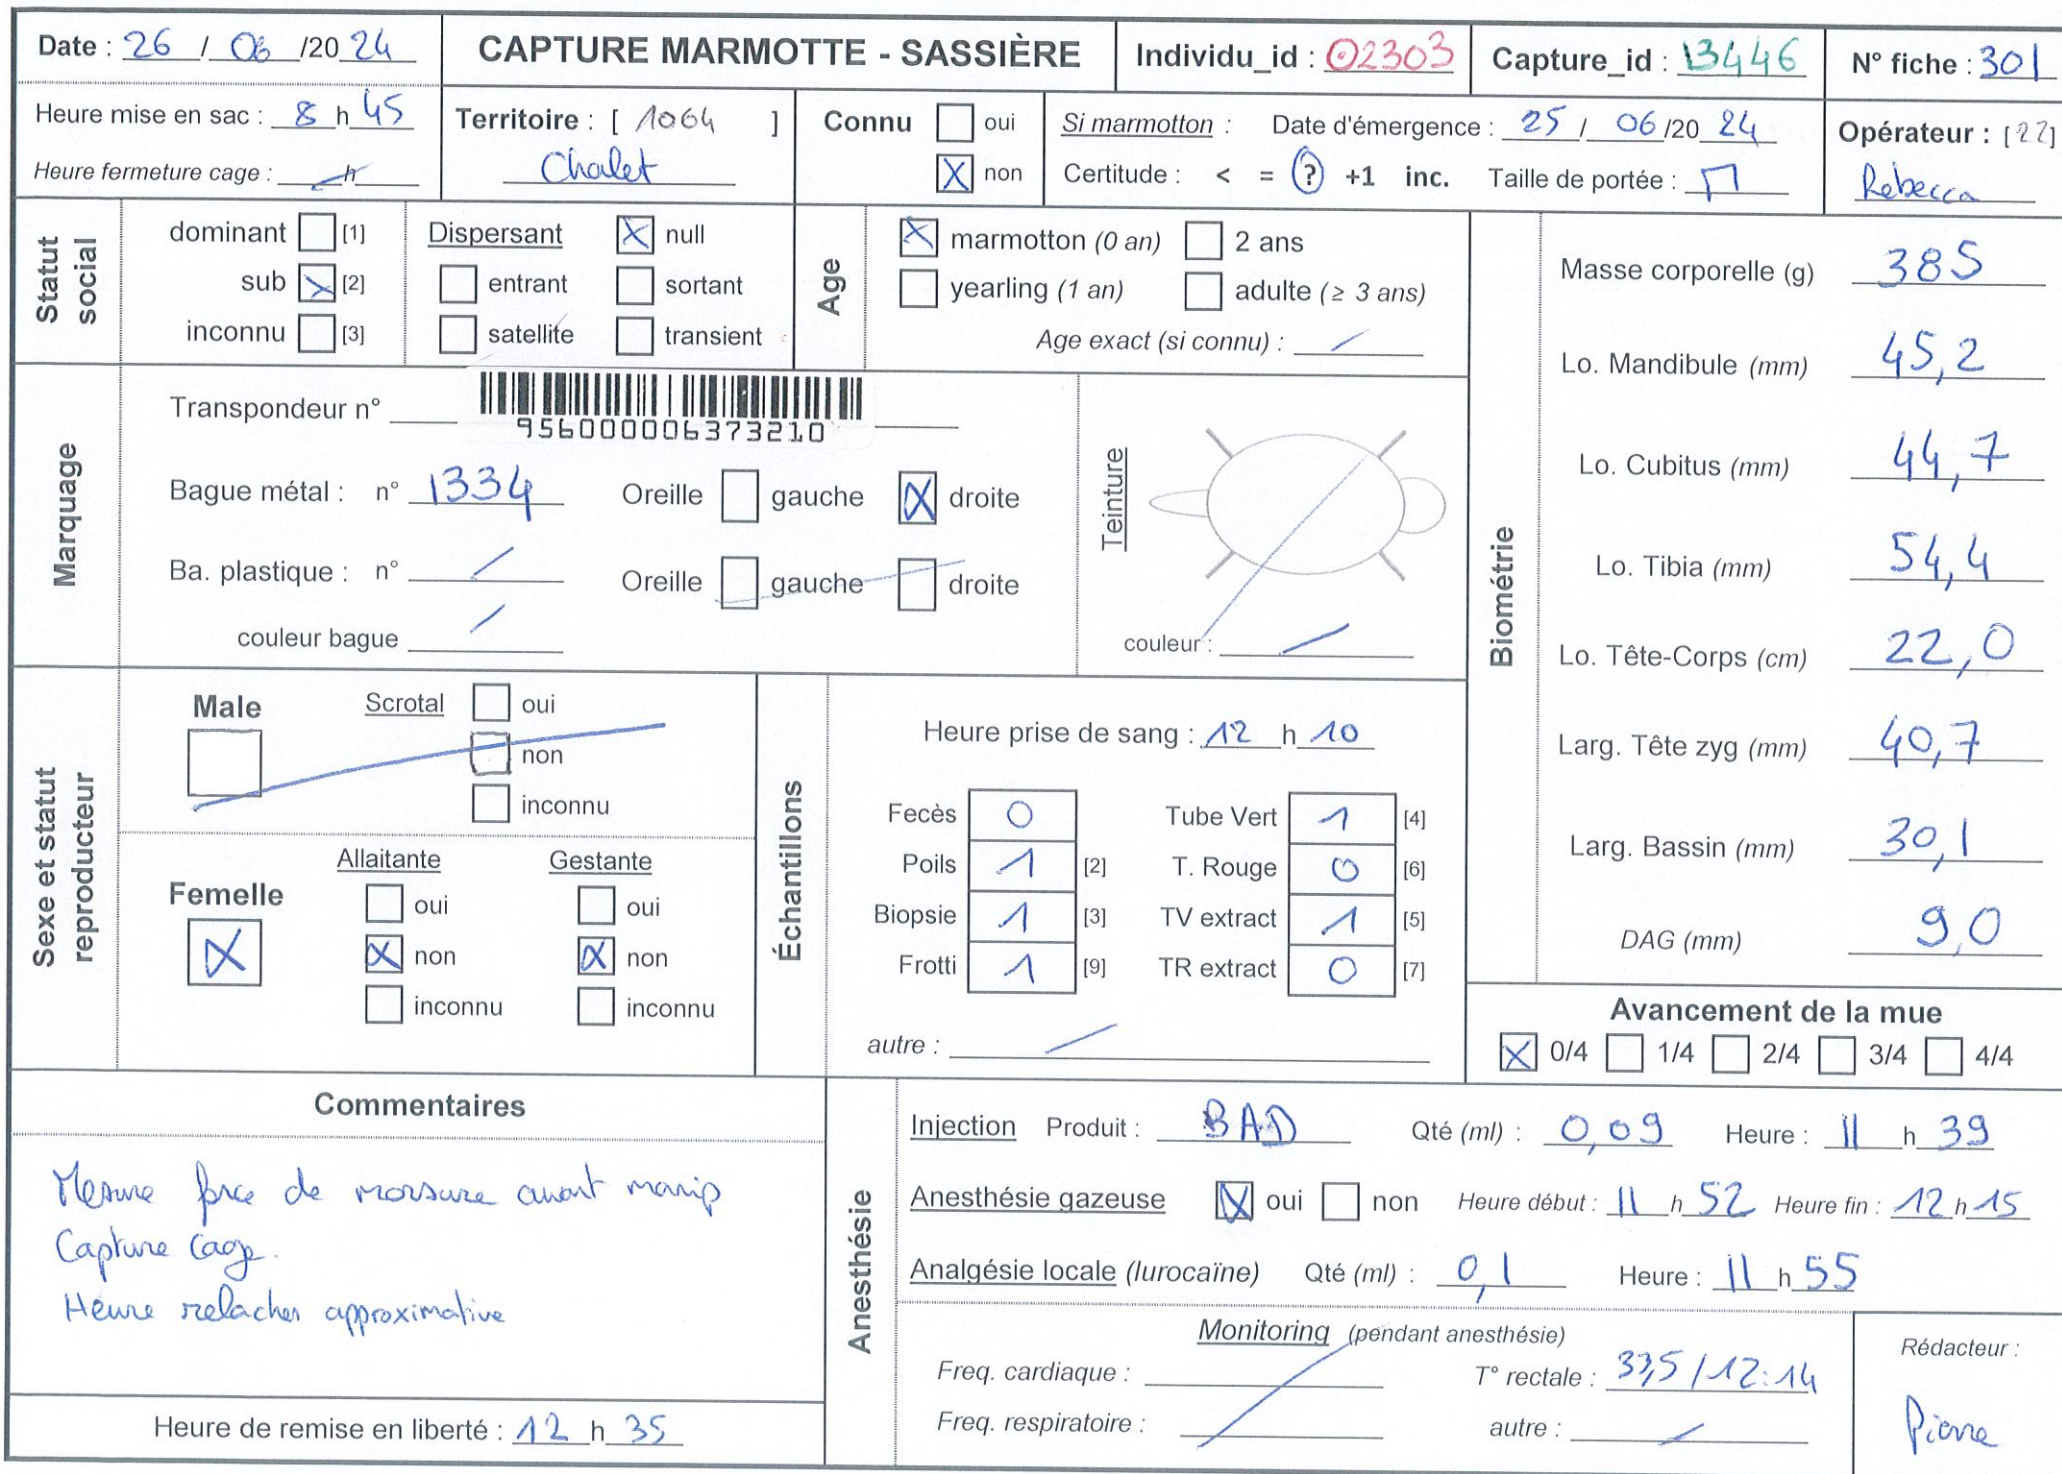 Date : 26 / 06 /20 24
CAPTURE MARMOTTE - SASSIÈRE
Individu_id : 02303
Capture_id : 13446
N° fiche : 301
Heure mise en sac : 8 h 45
Heure fermeture cage : h
Territoire : [ 1064 ]
Chalet
Connu oui
X non
Si marmotton : Date d'émergence : 25 / 06 /20 24
Certitude : < = ? +1 inc. Taille de portée :
Opérateur : [22]
Rebecca
Statut social
dominant [1]
sub X [2]
inconnu [3]
Dispersant X null
entrant sortant
satellite transient
Age
X marmotton (0 an) 2 ans
yearling (1 an) adulte (≥ 3 ans)
Age exact (si connu) : /
Marquage
Transpondeur n°
956000006373210
Bague métal : n° 1334 Oreille gauche X droite
Ba. plastique : n° / Oreille gauche droite
couleur bague /
Teinture
couleur : /
Biométrie
Masse corporelle (g) 385
Lo. Mandibule (mm) 45,2
Lo. Cubitus (mm) 44,7
Lo. Tibia (mm) 54,4
Lo. Tête-Corps (cm) 22,0
Larg. Tête zyg (mm) 40,7
Larg. Bassin (mm) 30,1
DAG (mm) 9,0
Sexe et statut reproducteur
Male
Scrotal oui
non
inconnu
Femelle X
Allaitante
oui
X non
inconnu
Gestante
oui
X non
inconnu
Échantillons
Heure prise de sang : 12 h 10
Fecès 0 Tube Vert 1 [4]
Poils 1 [2] T. Rouge 0 [6]
Biopsie 1 [3] TV extract 1 [5]
Frotti 1 [9] TR extract 0 [7]
autre : /
Avancement de la mue
X 0/4 1/4 2/4 3/4 4/4
Commentaires
Mesure force de morsure avant manip
Capture Cage.
Heure relacher approximative
Heure de remise en liberté : 12 h 35
Anesthésie
Injection Produit : BAD Qté (ml) : 0,09 Heure : 11 h 39
Anesthésie gazeuse X oui non Heure début : 11 h 52 Heure fin : 12 h 15
Analgésie locale (lurocaïne) Qté (ml) : 0,1 Heure : 11 h 55
Monitoring (pendant anesthésie)
Freq. cardiaque :
Freq. respiratoire :
T° rectale : 33,5 / 12:14
autre : /
Rédacteur :
Pierre